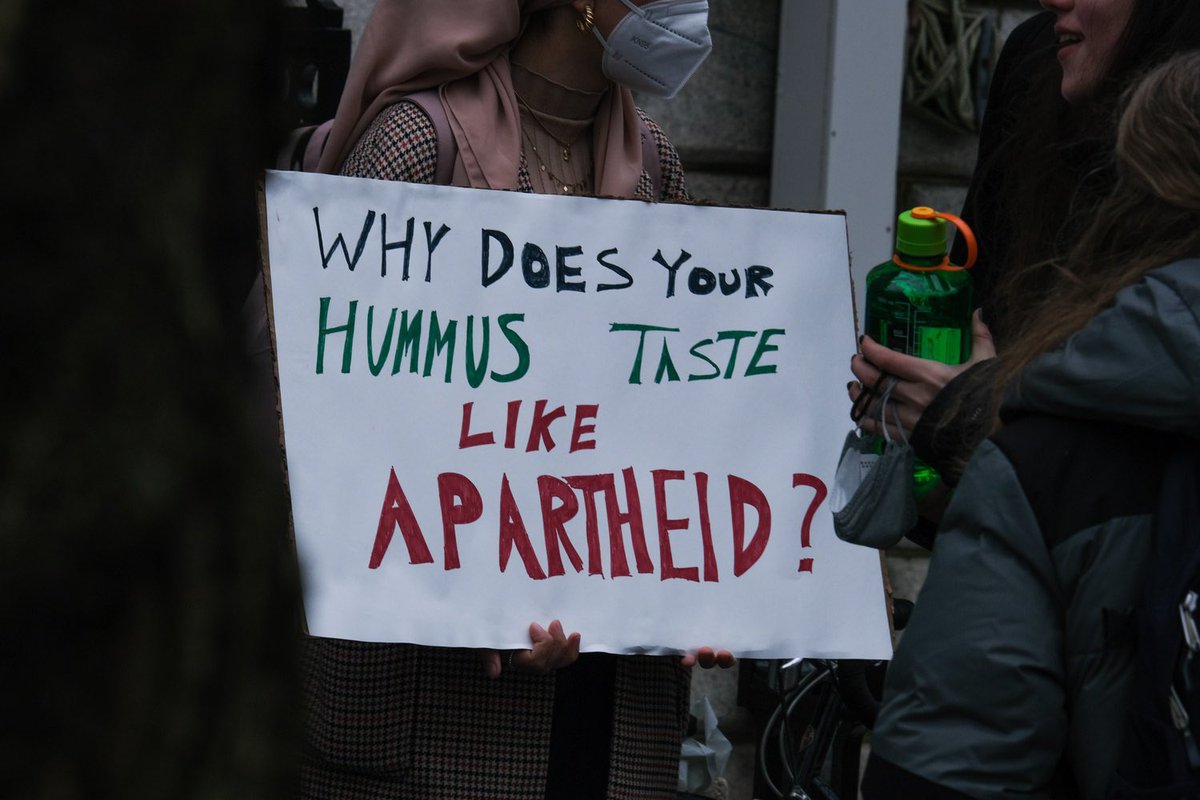 WHY DOES YOUR
HUMMUS TASTE
LIKE
APARTHEID?